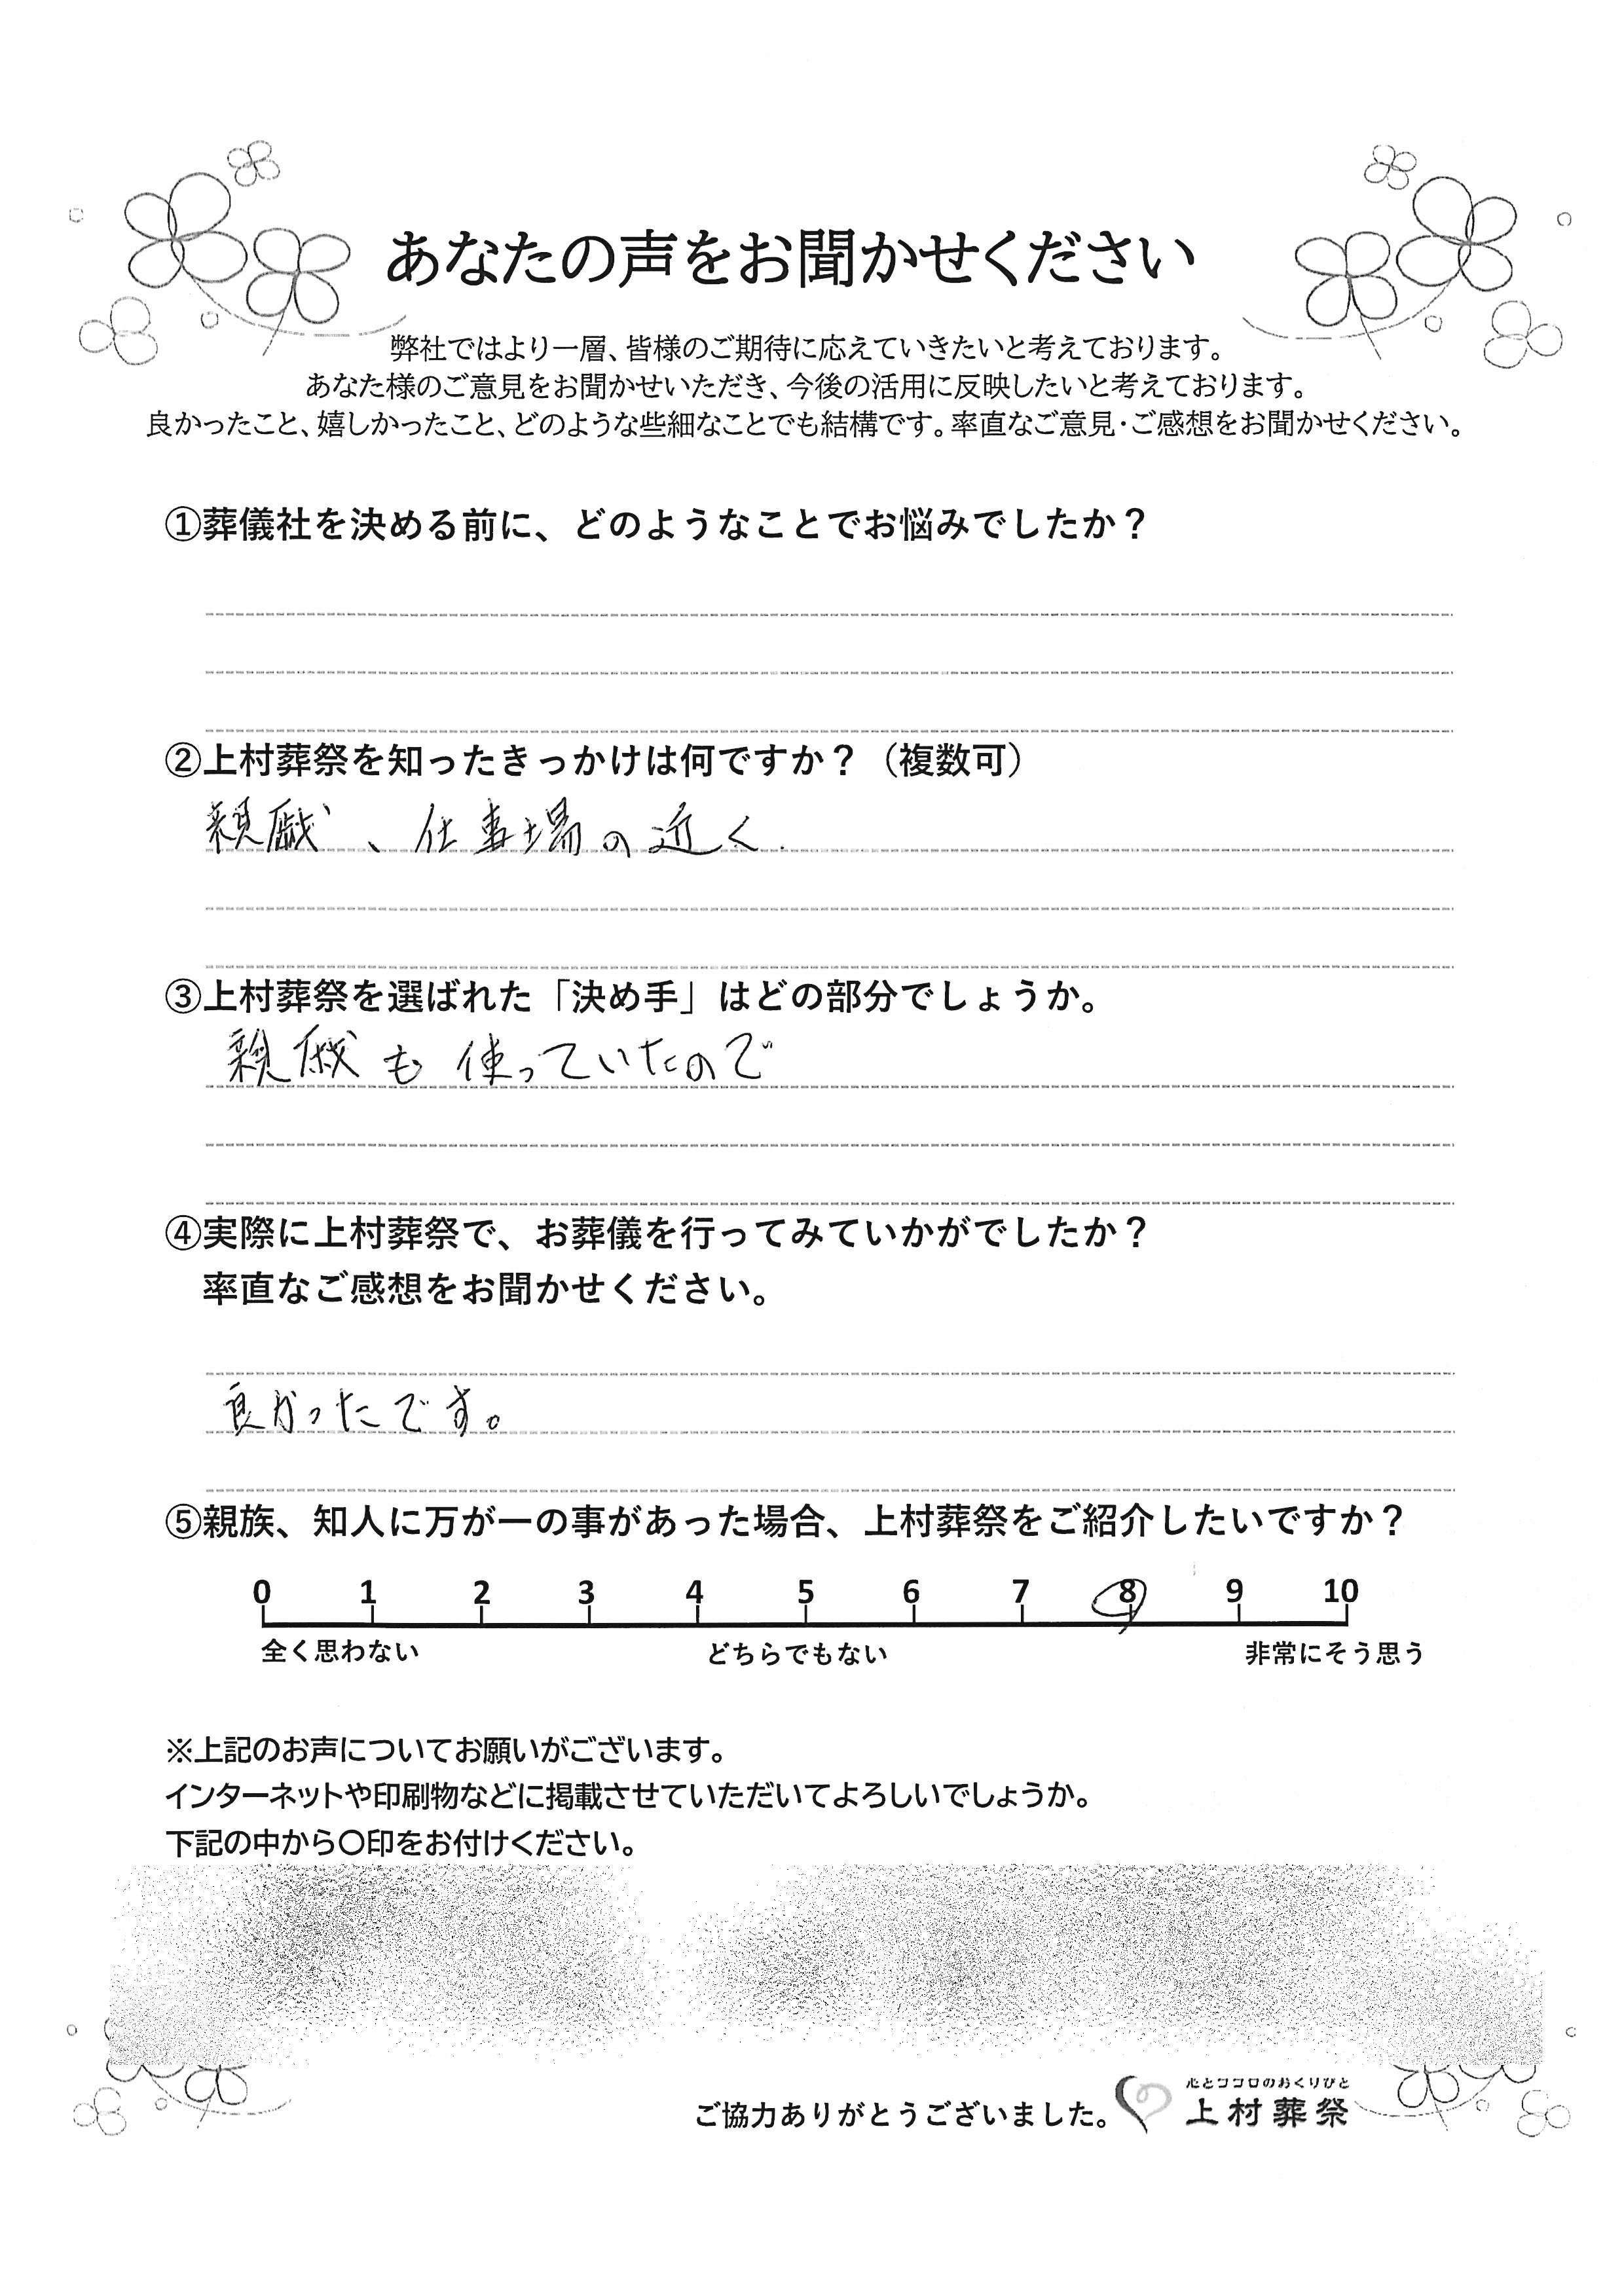 あなたの声をお聞かせください
弊社ではより一層、皆様のご期待に応えていきたいと考えております。
あなた様のご意見をお聞かせいただき、今後の活用に反映したいと考えております。
良かったこと、嬉しかったこと、どのような些細なことでも結構です。率直なご意見・ご感想をお聞かせください。
①葬儀社を決める前に、どのようなことでお悩みでしたか？
②上村葬祭を知ったきっかけは何ですか？（複数可）
親戚、仕事場の近く
③上村葬祭を選ばれた「決め手」はどの部分でしょうか。
親戚も使っていたので
④実際に上村葬祭で、お葬儀を行ってみていかがでしたか？
率直なご感想をお聞かせください。
良かったです。
⑤親族、知人に万が一の事があった場合、上村葬祭をご紹介したいですか？
0 1 2 3 4 5 6 7 8 9 10
全く思わない どちらでもない 非常にそう思う
※上記のお声についてお願いがございます。
インターネットや印刷物などに掲載させていただいてよろしいでしょうか。
下記の中から〇印をお付けください。
心とココロのおくりびと
ご協力ありがとうございました。 上村葬祭